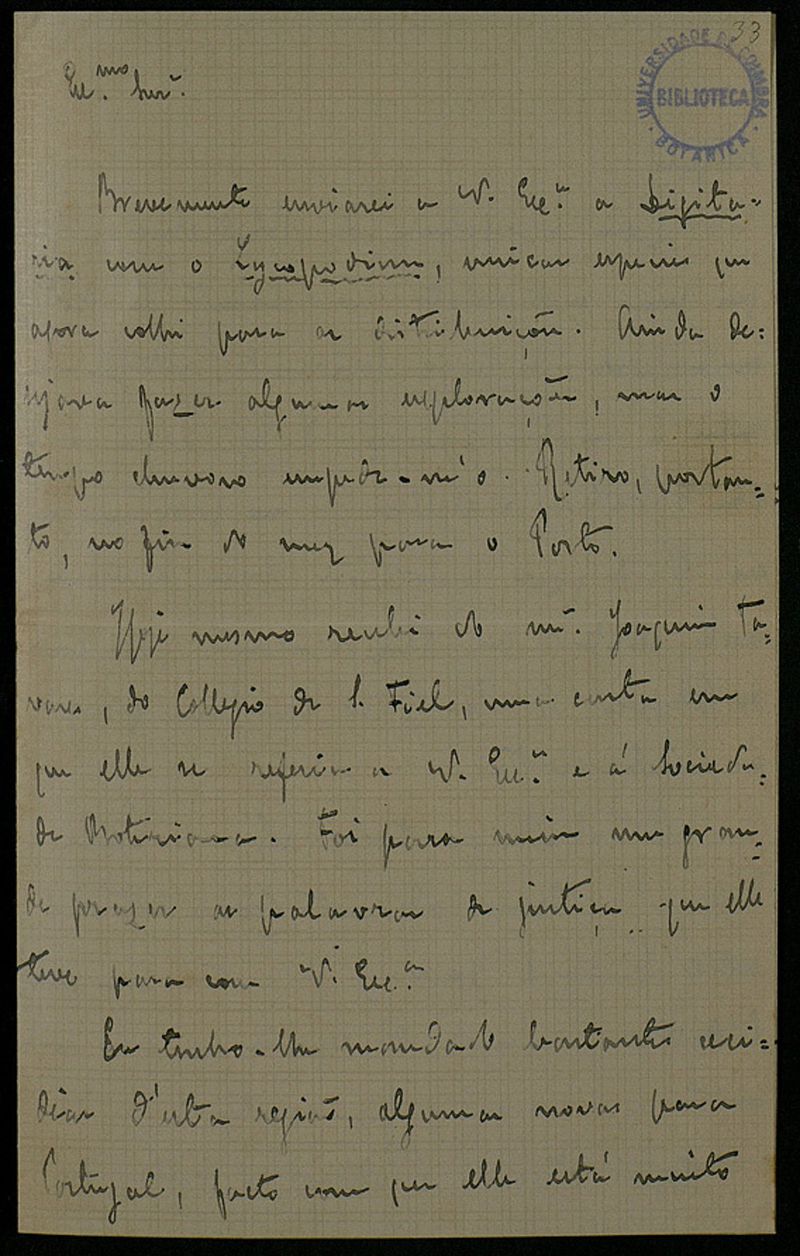 33
UNIVERSIDADE DE COIMBRA
BIBLIOTECA
BOTANICA
Exc.mo Snr.
Brevemente enviarei a V. Exc.a a Digita=
ria com o Lycopodium, unicas especies que
agora colhi para as distribuições. Ainda de=
sejava fazer algumas explorações, mas o
tempo chuvoso impede-m'o. Retiro, portan=
to, no fim do mez para o Porto.
Hoje mesmo recebi do snr. Joaquim Ta=
vares, do Collegio de S. Fiel, uma carta em
que elle se referia a V. Exc.a e á Socieda=
de Broteriana. Foi para mim um gran=
de prazer as palavras de justiça que elle
teve para com V. Exc.a
Eu tenho-lhe mandado bastantes ceci=
dias d'esta região, algumas novas para
Portugal, facto com que elle está muito